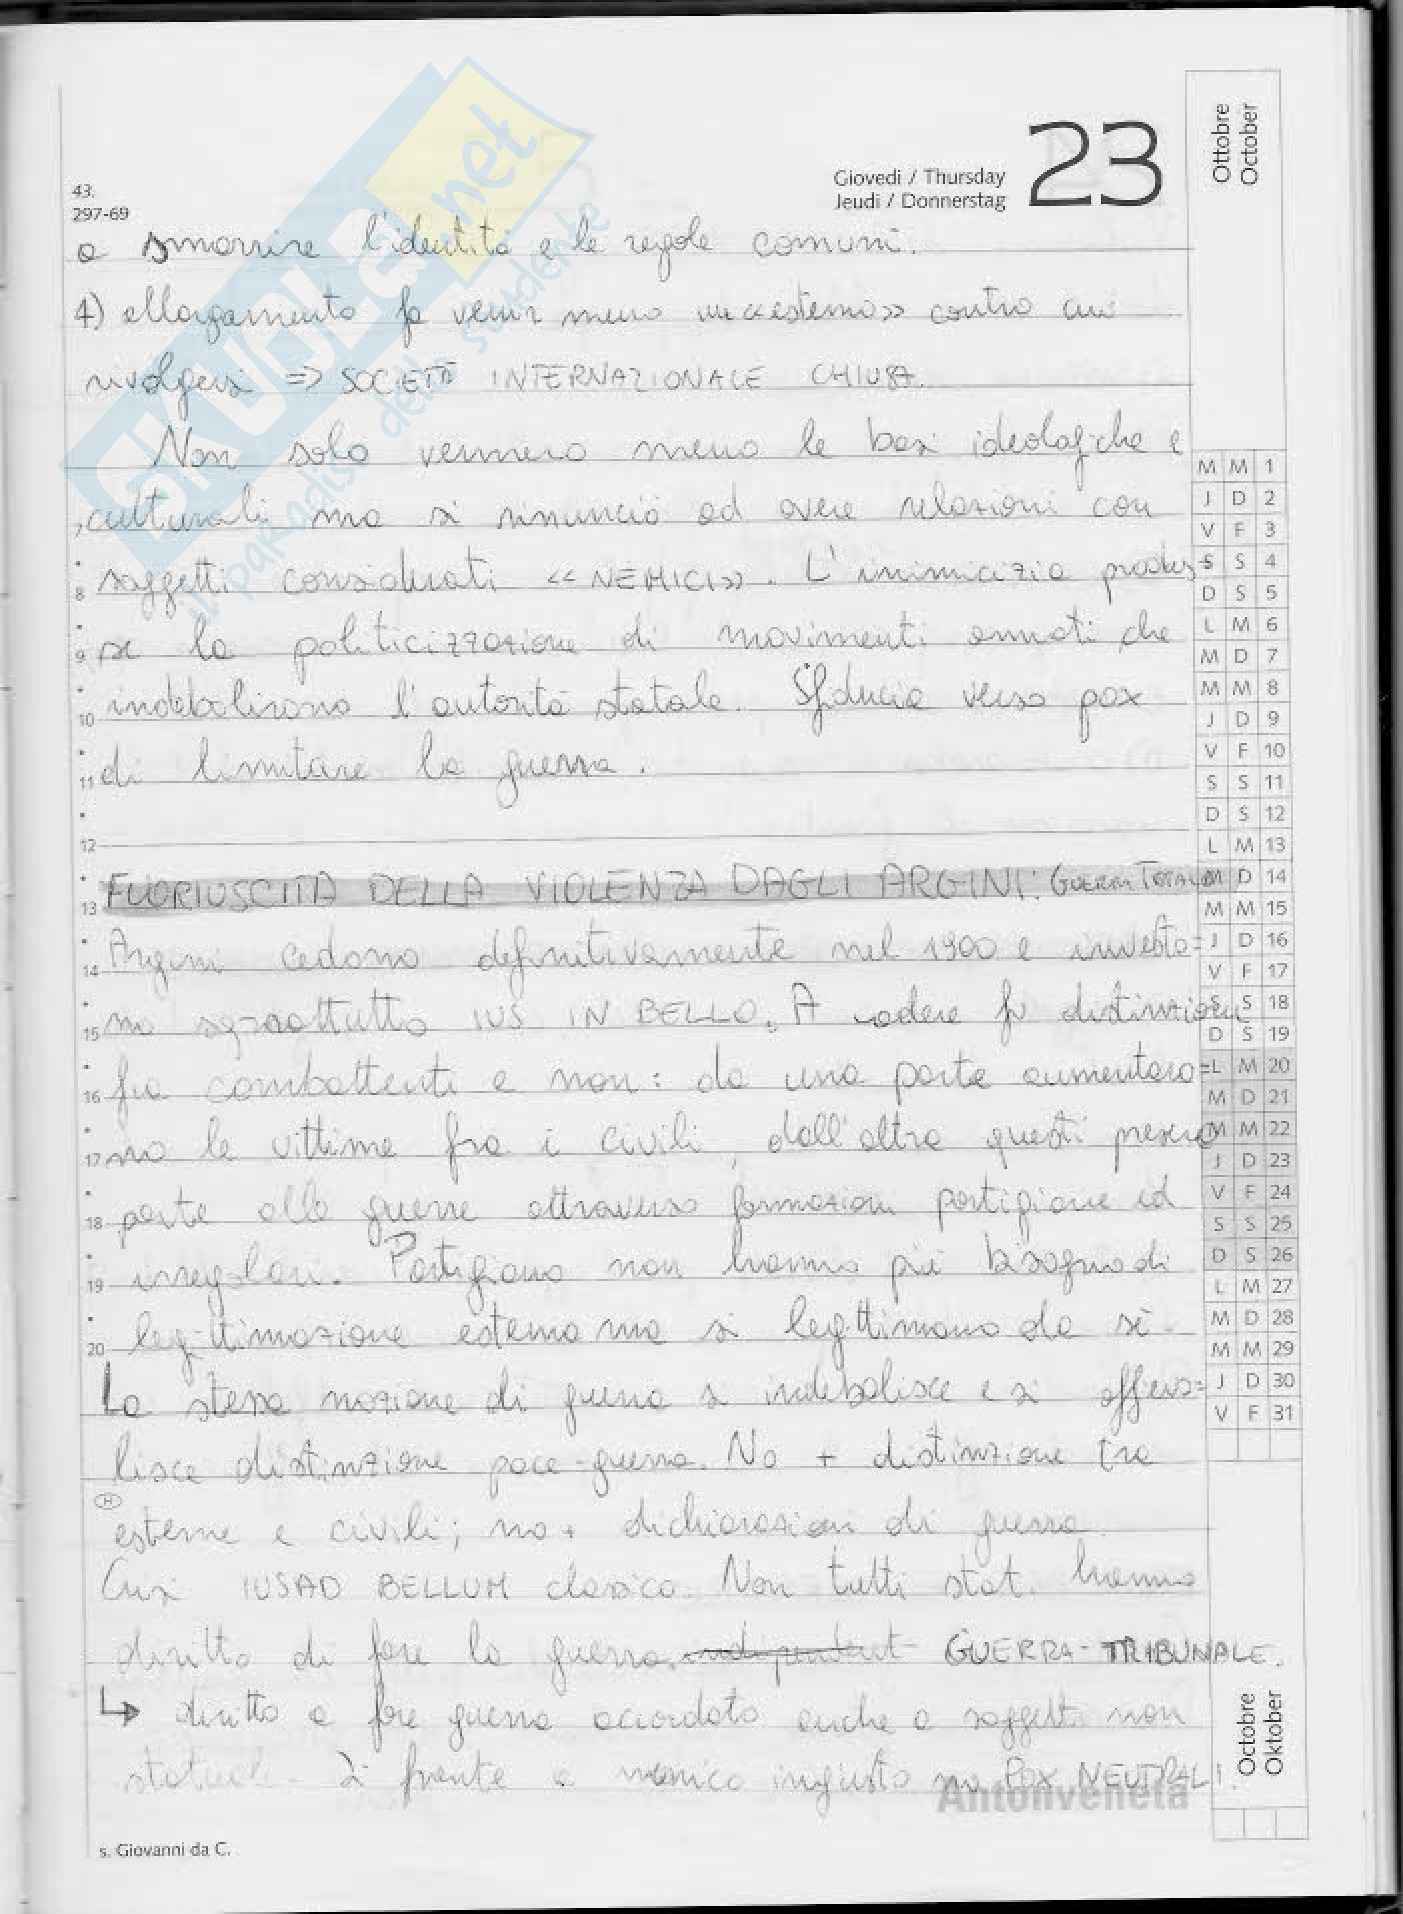 SKUOLA.net
il paradiso dello studente
Ottobre
October
Giovedì / Thursday
Jeudi / Donnerstag
23
43.
297-69
a smarrire l'identità e le regole comuni.
4) allargamento fa venir meno un «esterno» contro cui
rivolgersi => SOCIETÀ INTERNAZIONALE CHIUSA.
Non solo vennero meno le basi ideologiche e
culturali ma si rinunciò ad avere relazioni con
soggetti considerati «NEMICI». L'inimicizia produs
8
se la politicizzazione di movimenti armati che
9
indebolirono l'autorità statale. Sfiducia verso pox
10
di limitare la guerra.
11
12
FUORIUSCITA DELLA VIOLENZA DAGLI ARGINI: GUERRA TOTALE
13
Argini cedono definitivamente nel 1900 e investo=
14
no soprattutto IUS IN BELLO. A cadere fu distinzione
15
fra combattenti e non: da una parte aumentaro=
16
no le vittime fra i civili, dall'altra questi presero
17
parte alle guerre attraverso formazioni partigiane ed
18
irregolari. Partigiano non hanno più bisogno di
19
legittimazione esterna ma si legittimano da sé.
20
La stessa nozione di guerra si indebolisce e si affievo=
lisce distinzione pace-guerra. No + distinzione tra
esterne e civili; no + dichiarazioni di guerra
H
Crisi IUS AD BELLUM classico. Non tutti stat. hanno
diritto di fare la guerra. GUERRA-TRIBUNALE.
↳ diritto a fare guerra accordato anche a soggetti non
statuali. Di fronte a nemico ingiusto no POX NEUTRALI.
Antonveneta
s. Giovanni da C.
M M 1
J D 2
V F 3
S S 4
D S 5
L M 6
M D 7
M M 8
J D 9
V F 10
S S 11
D S 12
L M 13
M D 14
M M 15
J D 16
V F 17
S S 18
D S 19
L M 20
M D 21
M M 22
J D 23
V F 24
S S 25
D S 26
L M 27
M D 28
M M 29
J D 30
V F 31
Octobre
Oktober